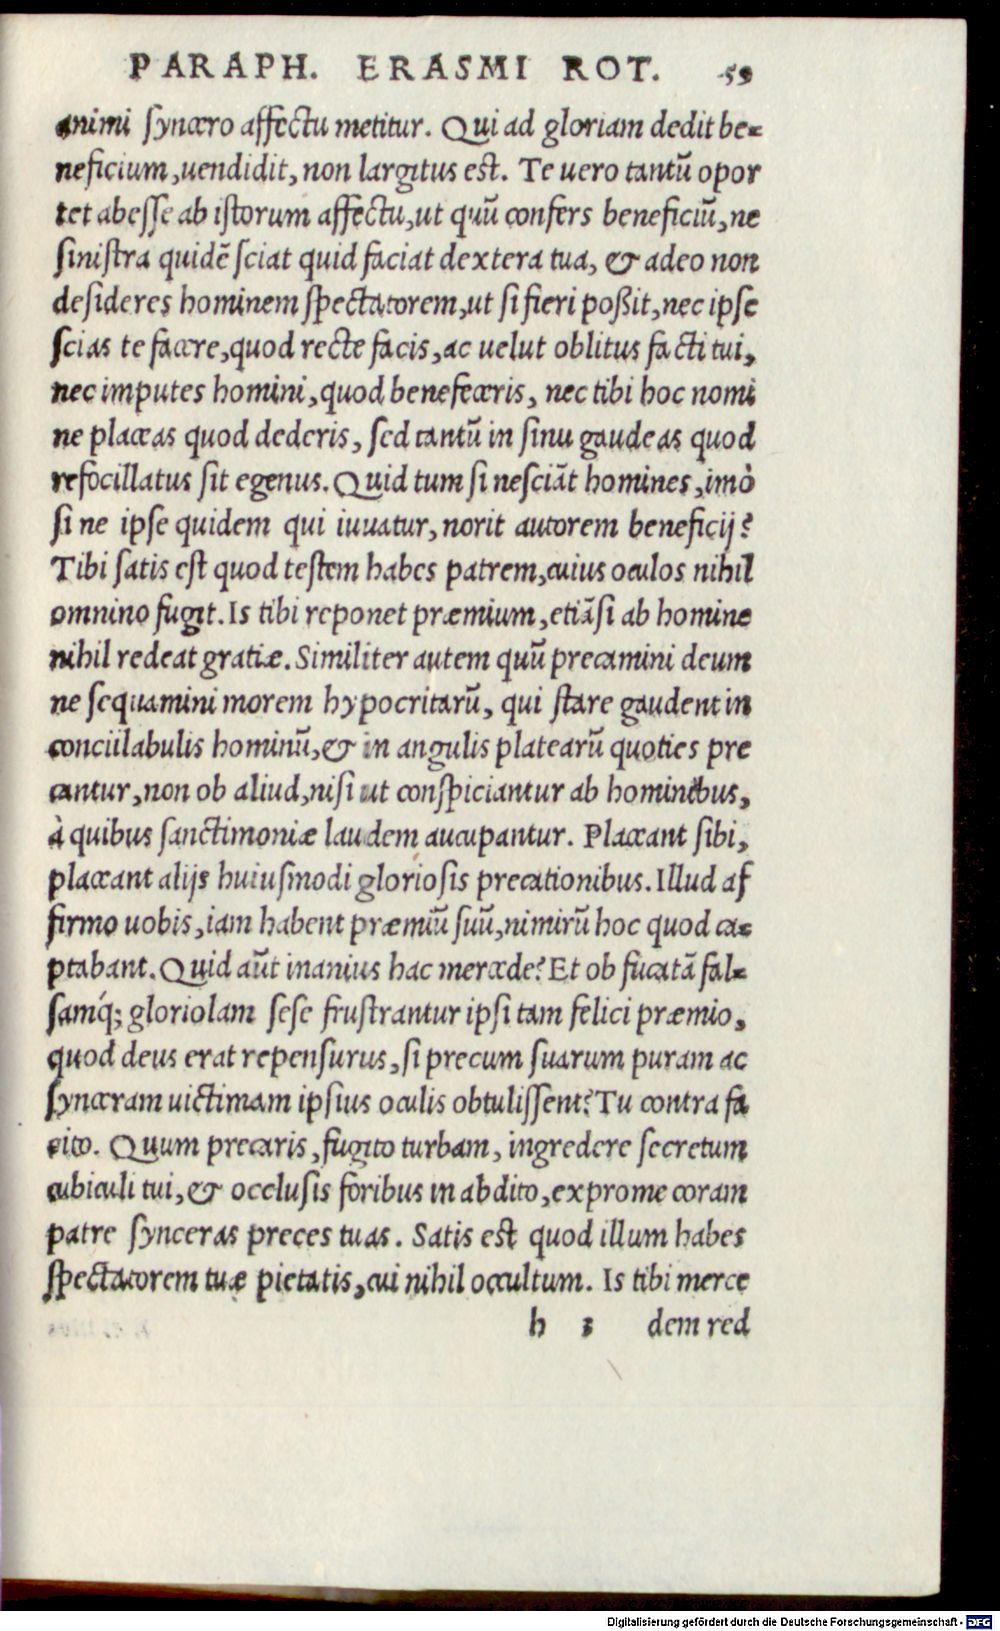 PARAPH. ERASMI ROT. 59
animi syncero affectu metitur. Qui ad gloriam dedit be-
neficium, uendidit, non largitus est. Te uero tantũ opor
tet abesse ab istorum affectu, ut quũ confers beneficiũ, ne
sinistra quidẽ sciat quid faciat dextera tua, & adeo non
desideres hominem spectatorem, ut si fieri poßit, nec ipse
scias te facere, quod recte facis, ac uelut oblitus facti tui,
nec imputes homini, quod benefeceris, nec tibi hoc nomi
ne placeas quod dederis, sed tantũ in sinu gaudeas quod
refocillatus sit egenus. Quid tum si nesciãt homines, imò
si ne ipse quidem qui iuuatur, norit autorem beneficij?
Tibi satis est quod testem habes patrem, cuius oculos nihil
omnino fugit. Is tibi reponet præmium, etiãsi ab homine
nihil redeat gratiæ. Similiter autem quũ precamini deum
ne sequamini morem hypocritarũ, qui stare gaudent in
conciilabulis hominũ, & in angulis platearũ quoties pre
cantur, non ob aliud, nisi ut conspiciantur ab hominibus,
à quibus sanctimoniæ laudem aucupantur. Placeant sibi,
placeant alijs huiusmodi gloriosis precationibus. Illud af
firmo uobis, iam habent præmiũ suũ, nimirũ hoc quod ca-
ptabant. Quid aũt inanius hac mercede? Et ob fucatã fal-
samq́; gloriolam sese frustrantur ipsi tam felici præmio,
quod deus erat repensurus, si precum suarum puram ac
synceram uictimam ipsius oculis obtulissent? Tu contra fa
cito. Quum precaris, fugito turbam, ingredere secretum
cubiculi tui, & occlusis foribus in abdito, exprome coram
patre synceras preces tuas. Satis est quod illum habes
spectatorem tuæ pietatis, cui nihil occultum. Is tibi merce
h 3 dem red
Digitalisierung gefördert durch die Deutsche Forschungsgemeinschaft - DFG